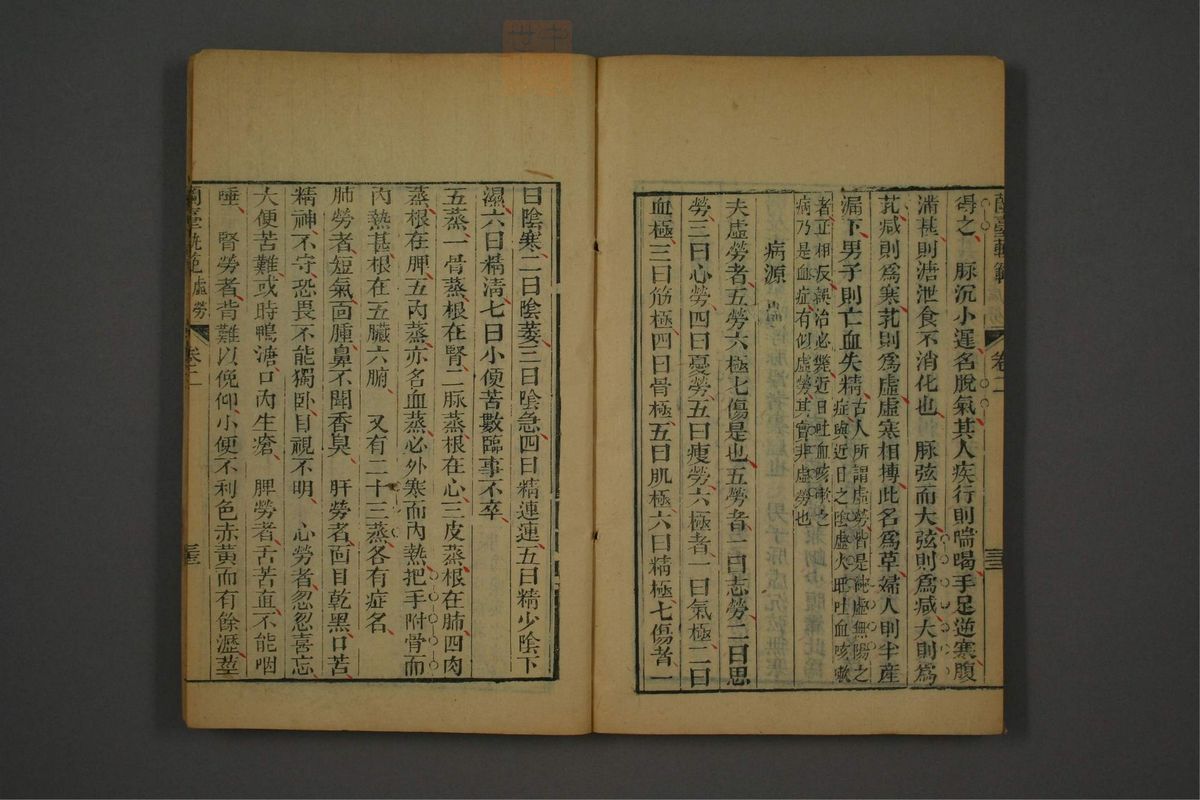 蘭臺軌範 卷二
得之 脉沉小遲名脫氣其人疾行則喘喝手足逆寒腹
滿甚則溏泄食不消化也 脉弦而大弦則爲減大則爲
芤減則爲寒芤則爲虛虛寒相搏此名爲革婦人則半產
漏下男子則亡血失精古人所謂虛勞皆是純虛無陽之
症與近日之陰虛火旺吐血咳嗽
者正相反誤治必斃近日吐血咳嗽之
病乃是血症有似虛勞其實非虛勞也
病源
夫虛勞者五勞六極七傷是也五勞者一曰志勞二曰思
勞三曰心勞四曰憂勞五曰瘦勞六極者一曰氣極二曰
血極三曰筋極四曰骨極五曰肌極六曰精極七傷者一
曰陰寒二曰陰萎三曰陰急四曰精連連五曰精少陰下
濕六曰精清七曰小便苦數臨事不卒
五蒸一骨蒸根在腎二脉蒸根在心三皮蒸根在肺四肉
蒸根在脾五內蒸亦名血蒸必外寒而內熱把手附骨而
內熱甚根在五臟六腑 又有二十三蒸各有症名
肺勞者短氣面腫鼻不聞香臭 肝勞者面目乾黑口苦
精神不守恐畏不能獨臥目視不明 心勞者忽忽喜忘
大便苦難或時鴨溏口內生瘡 脾勞者舌苦直不能咽
唾 腎勞者背難以俛仰小便不利色赤黃而有餘瀝莖
蘭臺軌範 虛勞 卷二